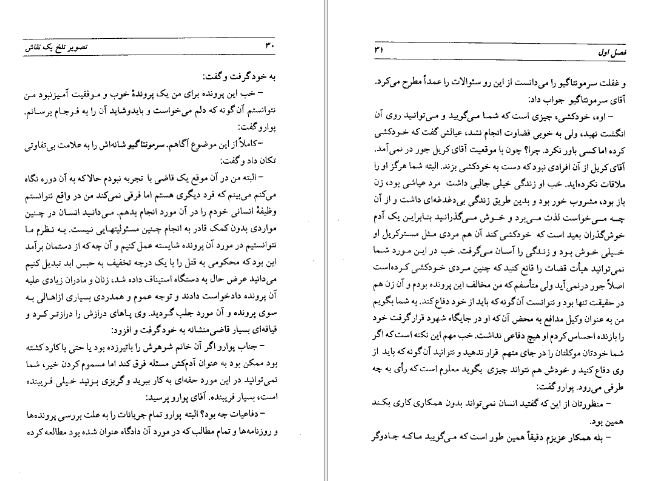 ۳۰ تصویر تلخ یک نقاش
به خود گرفت و گفت:
– خب این پرونده برای من یک پروندهٔ خوب و موفقیت آمیز نبود من
نتوانستم آن گونه که دلم می‌خواست و باید و شاید آن را به فرجام برسانم.
پوارو گفت:
– کاملاً از این موضوع آگاهم. سرمونتاگیو شانه‌اش را به علامت بی‌تفاوتی
تکان داد و گفت:
– البته من در آن موقع یک قاضی با تجربه نبودم حالا که به آن دوره نگاه
می‌کنم می‌بینم که فرد دیگری هستم اما فرقی نمی‌کند من در واقع نتوانستم
وظیفهٔ انسانی خودم را در آن مورد انجام بدهم. می‌دانید انسان در چنین
مواردی بدون کمک قادر به انجام چنین مسئولیتهایی نیست. به نظرم ما
نتوانستیم در مورد آن پرونده شایسته عمل کنیم و آن چه که از دستمان برآمد
این بود که محکومی به قتل را با یک درجه تخفیف به حبس ابد تبدیل کنیم
می‌دانید عرض حال به دستگاه استیناف داده شد، زنان و مادران زیادی علیه
آن پرونده دادخواست دادند و توجه عموم و همدردی بسیاری از اهالی به
سوی پرونده و آن مورد جلب گردید. وی پاهای درازش را درازتر کرد و
قیافه‌ای بسیار قاضی‌منشانه به خود گرفت و افزود:
– جناب پوارو اگر آن خانم شوهرش را با تیر زده بود یا حتی با کارد کشته
بود ممکن بود به عنوان آدم‌کش مسئله فرق کند اما مسموم کردن خیره شما
نمی‌توانید در این مورد حقه‌ای به کار ببرید و گریزی بزنید خیلی فریبنده
است، بسیار فریبنده. آقای پوارو پرسید:
– دفاعیات چه بود؟ البته پوارو تمام جریانات را به علت بررسی پرونده‌ها
و روزنامه‌ها و تمام مطالب که در مورد آن دادگاه عنوان شده بود مطالعه کرده
فصل اول ۳۱
و غفلت سرمونتاگیو را می‌دانست از این رو سئوالات را عمداً مطرح می‌کرد.
آقای سرمونتاگیو جواب داد:
– اوه، خودکشی، چیزی است که شما می‌گویید و می‌توانید روی آن
انگشت نهید، ولی به خوبی قضاوت انجام نشد، عیالش گفت که خودکشی
کرده اما کسی باور نکرد. چرا؟ چون با موقعیت آقای کریل جور در نمی‌آمد.
آقای کریل از آن افرادی نبود که دست به خودکشی بزند. البته شما هرگز او را
ملاقات نکرده‌اید. خب او زندگی خیلی جالبی داشت مرد عیاشی بود، زن
باز بود، مشروب خور بود و بدین طریق زندگی بی‌دغدغه‌ای داشت و از آن
چه می‌خواست لذت می‌برد و خوش می‌گذرانید بنابراین یک آدم
خوش‌گذران بعید است که خودکشی کند آن هم مردی مثل مسترکریل او
خیلی خوش بود و زندگی را آسان می‌گرفت. خب در این مورد شما
نمی‌توانید هیأت قضات را قانع کنید که چنین مردی خودکشی کرده‌است
اصلاً جور درنمی‌آید ولی متأسفم که من مخالف این پرونده بودم و آن زن هم
در حقیقت تنها بود و نتوانست آن‌گونه که باید از خود دفاع کند. به شما بگویم
من به عنوان وکیل مدافع به محض آن که او در جایگاه شهود قرار گرفت خود
را بازنده احساس کردم او هیچ دفاعی نداشت. خب مهم این نکته است که اگر
شما خودتان موکلتان را در جای متهم قرار ندهید و نتوانید آن گونه که باید از
وی دفاع کنید و خودش هم نتواند چیزی بگوید معلوم است که رأی به چه
طرفی می‌رود. پوارو گفت:
– منظورتان از این که گفتید انسان نمی‌تواند بدون همکاری کاری بکند
همین بود.
– بله همکار عزیزم دقیقاً همین طور است که می‌گویید ما که جادوگر